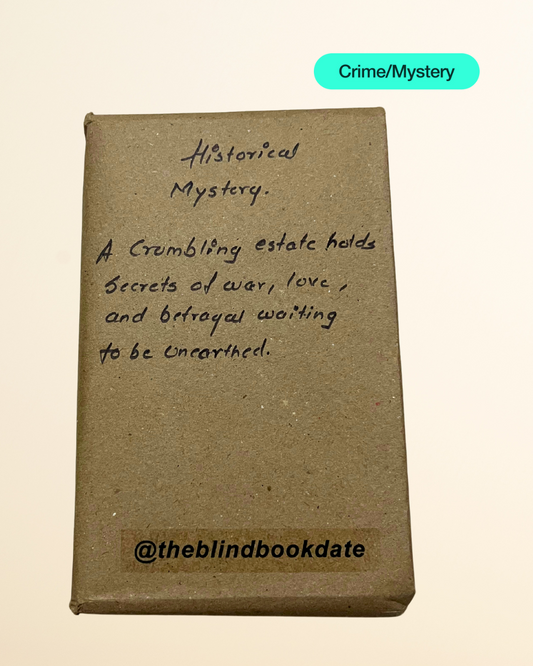 Crime/Mystery
Historical
Mystery.
A Crumbling estate holds
Secrets of war, love,
and betrayal waiting
to be unearthed.
@theblindbookdate